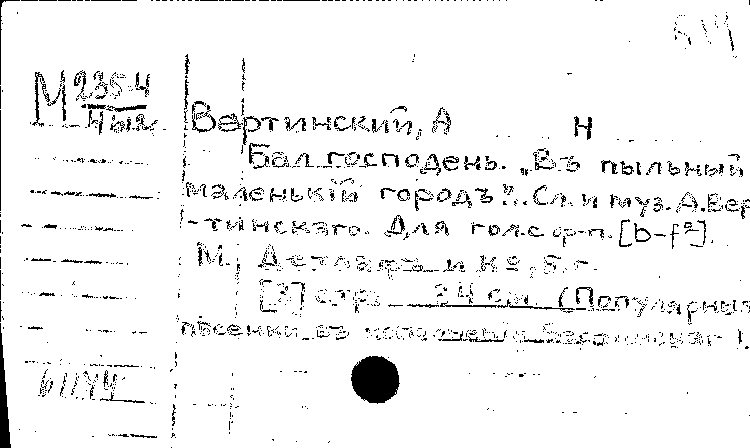 М 235-4
Вертинский, А Н
Бал господень. „Въ пыльный
маленькій городъ"... Сл. и муз. А. Вер
-тинскаго. Для гол. с ф-п. [b-f²].
М., Детлафъ и К⁰, б. г.
[3] стр. 34 см. (Популярныя
пѣсенки въ исполненіи Вертинскаг
61144